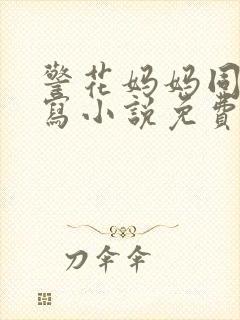 警花妈妈同
寫小說免費
刀伞伞